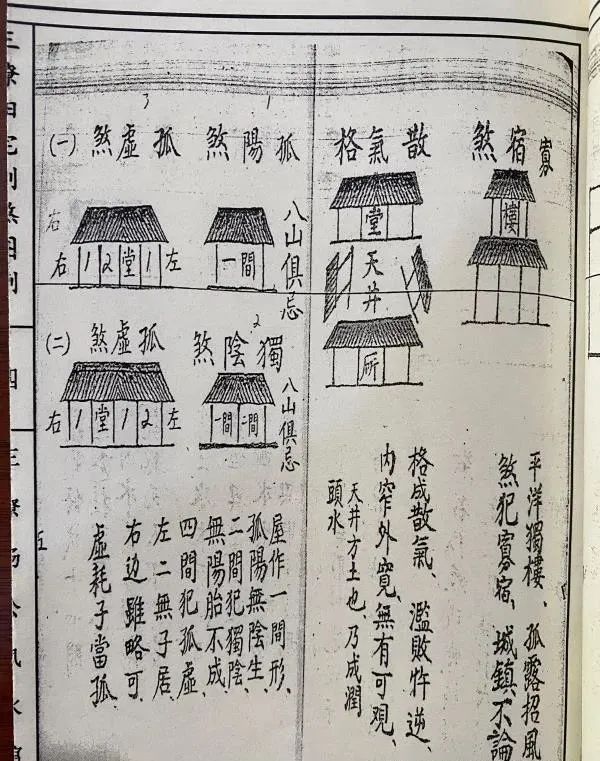 寡宿煞
樓
平洋獨樓、孤露招風
煞犯寡宿、城鎮不論
散氣格
堂
天井
所
格成散氣、濫敗忤逆、
内窄外寬、無有可观、
天井方土也、乃成潤
頭水
1
孤陽煞
一間
八山俱忌
3
孤虛煞 (一)
右
右 1 2 堂 1 左
2
獨陰煞
一間 二間
八山俱忌
孤虛煞 (二)
右 1 堂 1 2 左
屋作一間形、
孤陽無陰生、
二間犯獨陰、
無陽胎不成
四間犯孤虛、
左二無子居、
右边雖略可、
虛耗子當孤、
四
五